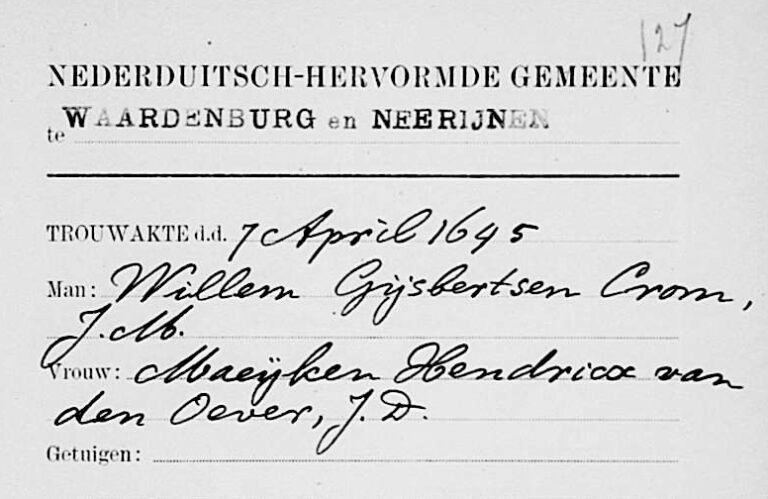 127
NEDERDUITSCH-HERVORMDE GEMEENTE
te WAARDENBURG en NEERIJNEN
TROUWAKTE d.d. 7 April 1645
Man: Willem Gijsbertsen Crom,
J.M.
Vrouw: Maeijken Hendricx van
den Oever, J.D.
Getuigen: